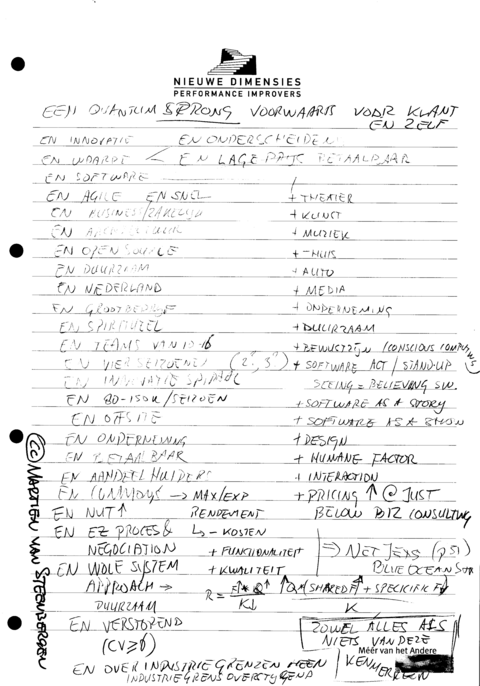 NIEUWE DIMENSIES
PERFORMANCE IMPROVERS
EEN QUANTUM SPRONG VOORWAARTS VOOR KLANT
EN ZELF
EN INNOVATIE EN ONDERSCHEIDEN
EN WAARDE < EN LAGE PRIJS BETAALBAAR
EN SOFTWARE
EN AGILE EN SNEL + THEATER
EN BUSINESS/ZAKELIJK + KUNST
EN + MUZIEK
EN OPEN SOURCE + THUIS
EN DUURZAAM + AUTO
EN NEDERLAND + MEDIA
EN GROOTBEDRIJF + ONDERNEMING
EN SPIRITUEEL + DUURZAAM
EN TEAMS VAN 10-16 + BEWUSTZIJN / CONSCIOUS
EN VIER SEIZOENEN (2", 3") + SOFTWARE ACT / STAND-UP
EN SPIRAAL SEEING = BELIEVING SW.
EN 80-150K/SEIZOEN + SOFTWARE AS A STORY
EN OFFSITE + SOFTWARE AS A SHOW
EN ONDERNEMING + DESIGN
EN BETAALBAAR + HUMANE FACTOR
EN AANDEELHOUDERS + INTERACTION
EN CONVOYS → MAX/EXP + PRICING ↑ @ JUST
EN NUT ↑ RENDEMENT BELOW BIZ CONSULTING
EN EZ PROCES & ↳ - KOSTEN
NEGOCIATION + FUNCTIONALITEIT ⇒ NET JENS (p51)
EN WOLE SYSTEM + KWALITEIT BLUE OCEAN STR
APPROACH → R = F↑ * Q↑ / K↓ ↑QM (SHARED F↑ + SPECIFIC F) / K
DUURZAAM
EN VERSTOREND ZOWEL ALLES ALS
(CV≥6) NIETS VAN DEZE
Méér van het Andere
KENMERKEN
EN OVER INDUSTRIE GRENZEN HEEN
INDUSTRIEGRENS OVERSTYGEND
(cc) MARTIEN VAN STEENBERGEN